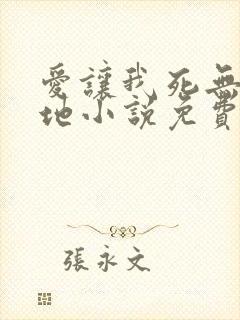 愛讓我死無
地小說免費
張永文